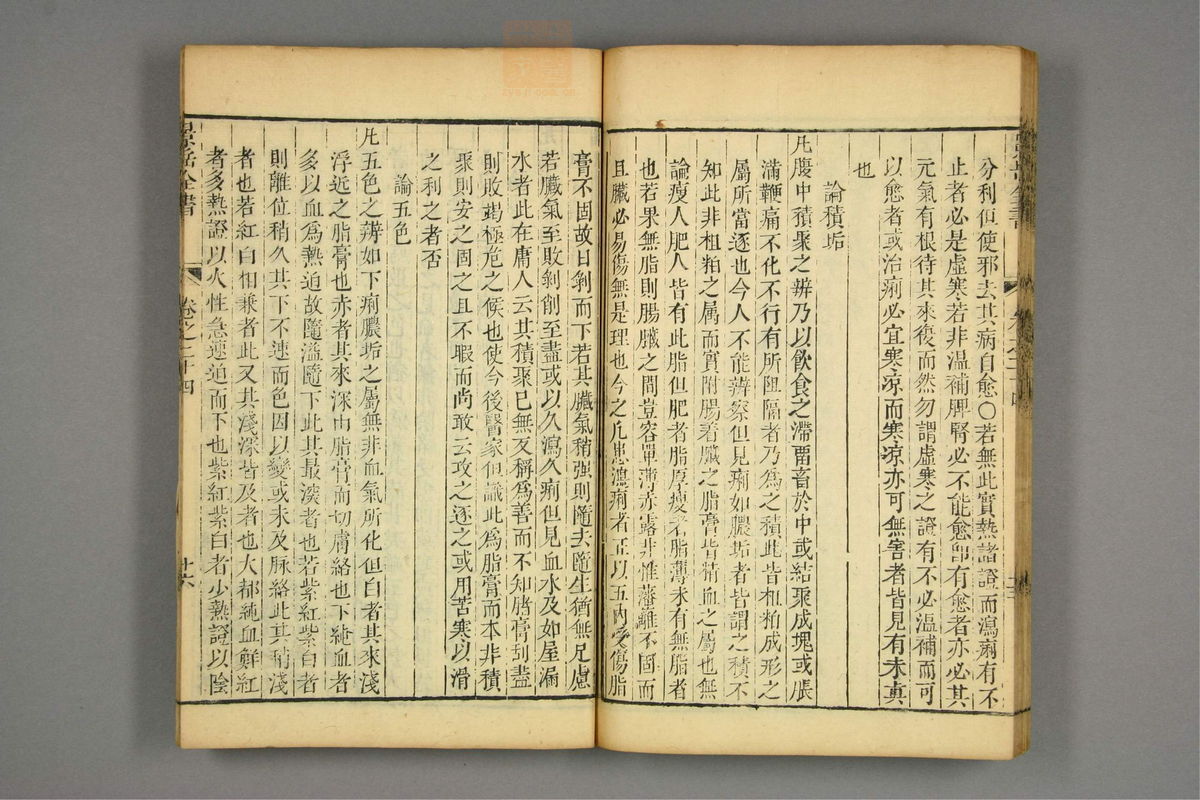 分利但使邪去其病自愈〇若無此實熱諸證而瀉痢有不
止者必是虛寒若非溫補脾腎必不能愈即有愈者亦必其
元氣有根待其來復而然勿謂虛寒之證有不必溫補而可
以愈者或治痢必宜寒涼而寒涼亦可無害者皆見有未眞
也
論積垢
凡腹中積聚之辨乃以飲食之滯畱蓄於中或結聚成塊或脹
滿鞕痛不化不行有所阻隔者乃爲之積此皆粗粕成形之
屬所當逐也今人不能辨察但見痢如膿垢者皆謂之積不
知此非粗粕之屬而實附腸着臟之脂膏皆精血之屬也無
論瘦人肥人皆有此脂但肥者脂厚瘦者脂薄未有無脂者
也若果無脂則腸臟之間豈容單薄赤露非惟藩籬不固而
且臟必易傷無是理也今之凡患瀉痢者正以五內受傷脂
膏不固故日剝而下若其臟氣稍强則隨去隨生猶無足慮
若臟氣至敗剝削至盡或以久瀉久痢但見血水及如屋漏
水者此在庸人云其積聚已無反稱爲善而不知脂膏刮盡
則敗竭極危之候也使今後醫家但識此爲脂膏而本非積
聚則安之固之且不暇而尚敢云攻之逐之或用苦寒以滑
之利之者否
論五色
凡五色之辨如下痢膿垢之屬無非血氣所化但白者其來淺
浮近之脂膏也赤者其來深由脂膏而切膚絡也下純血者
多以血爲熱迫故隨溢隨下此其最深者也若紫紅紫白者
則離位稍久其下不速而色因以變或未及脉絡此其稍淺
者也若紅白相乘者此又其淺深皆及者也大都純血鮮紅
者多熱證以火性急速迫而下也紫紅紫白者少熱證以陰
景岳全書
卷之二十四
廿六